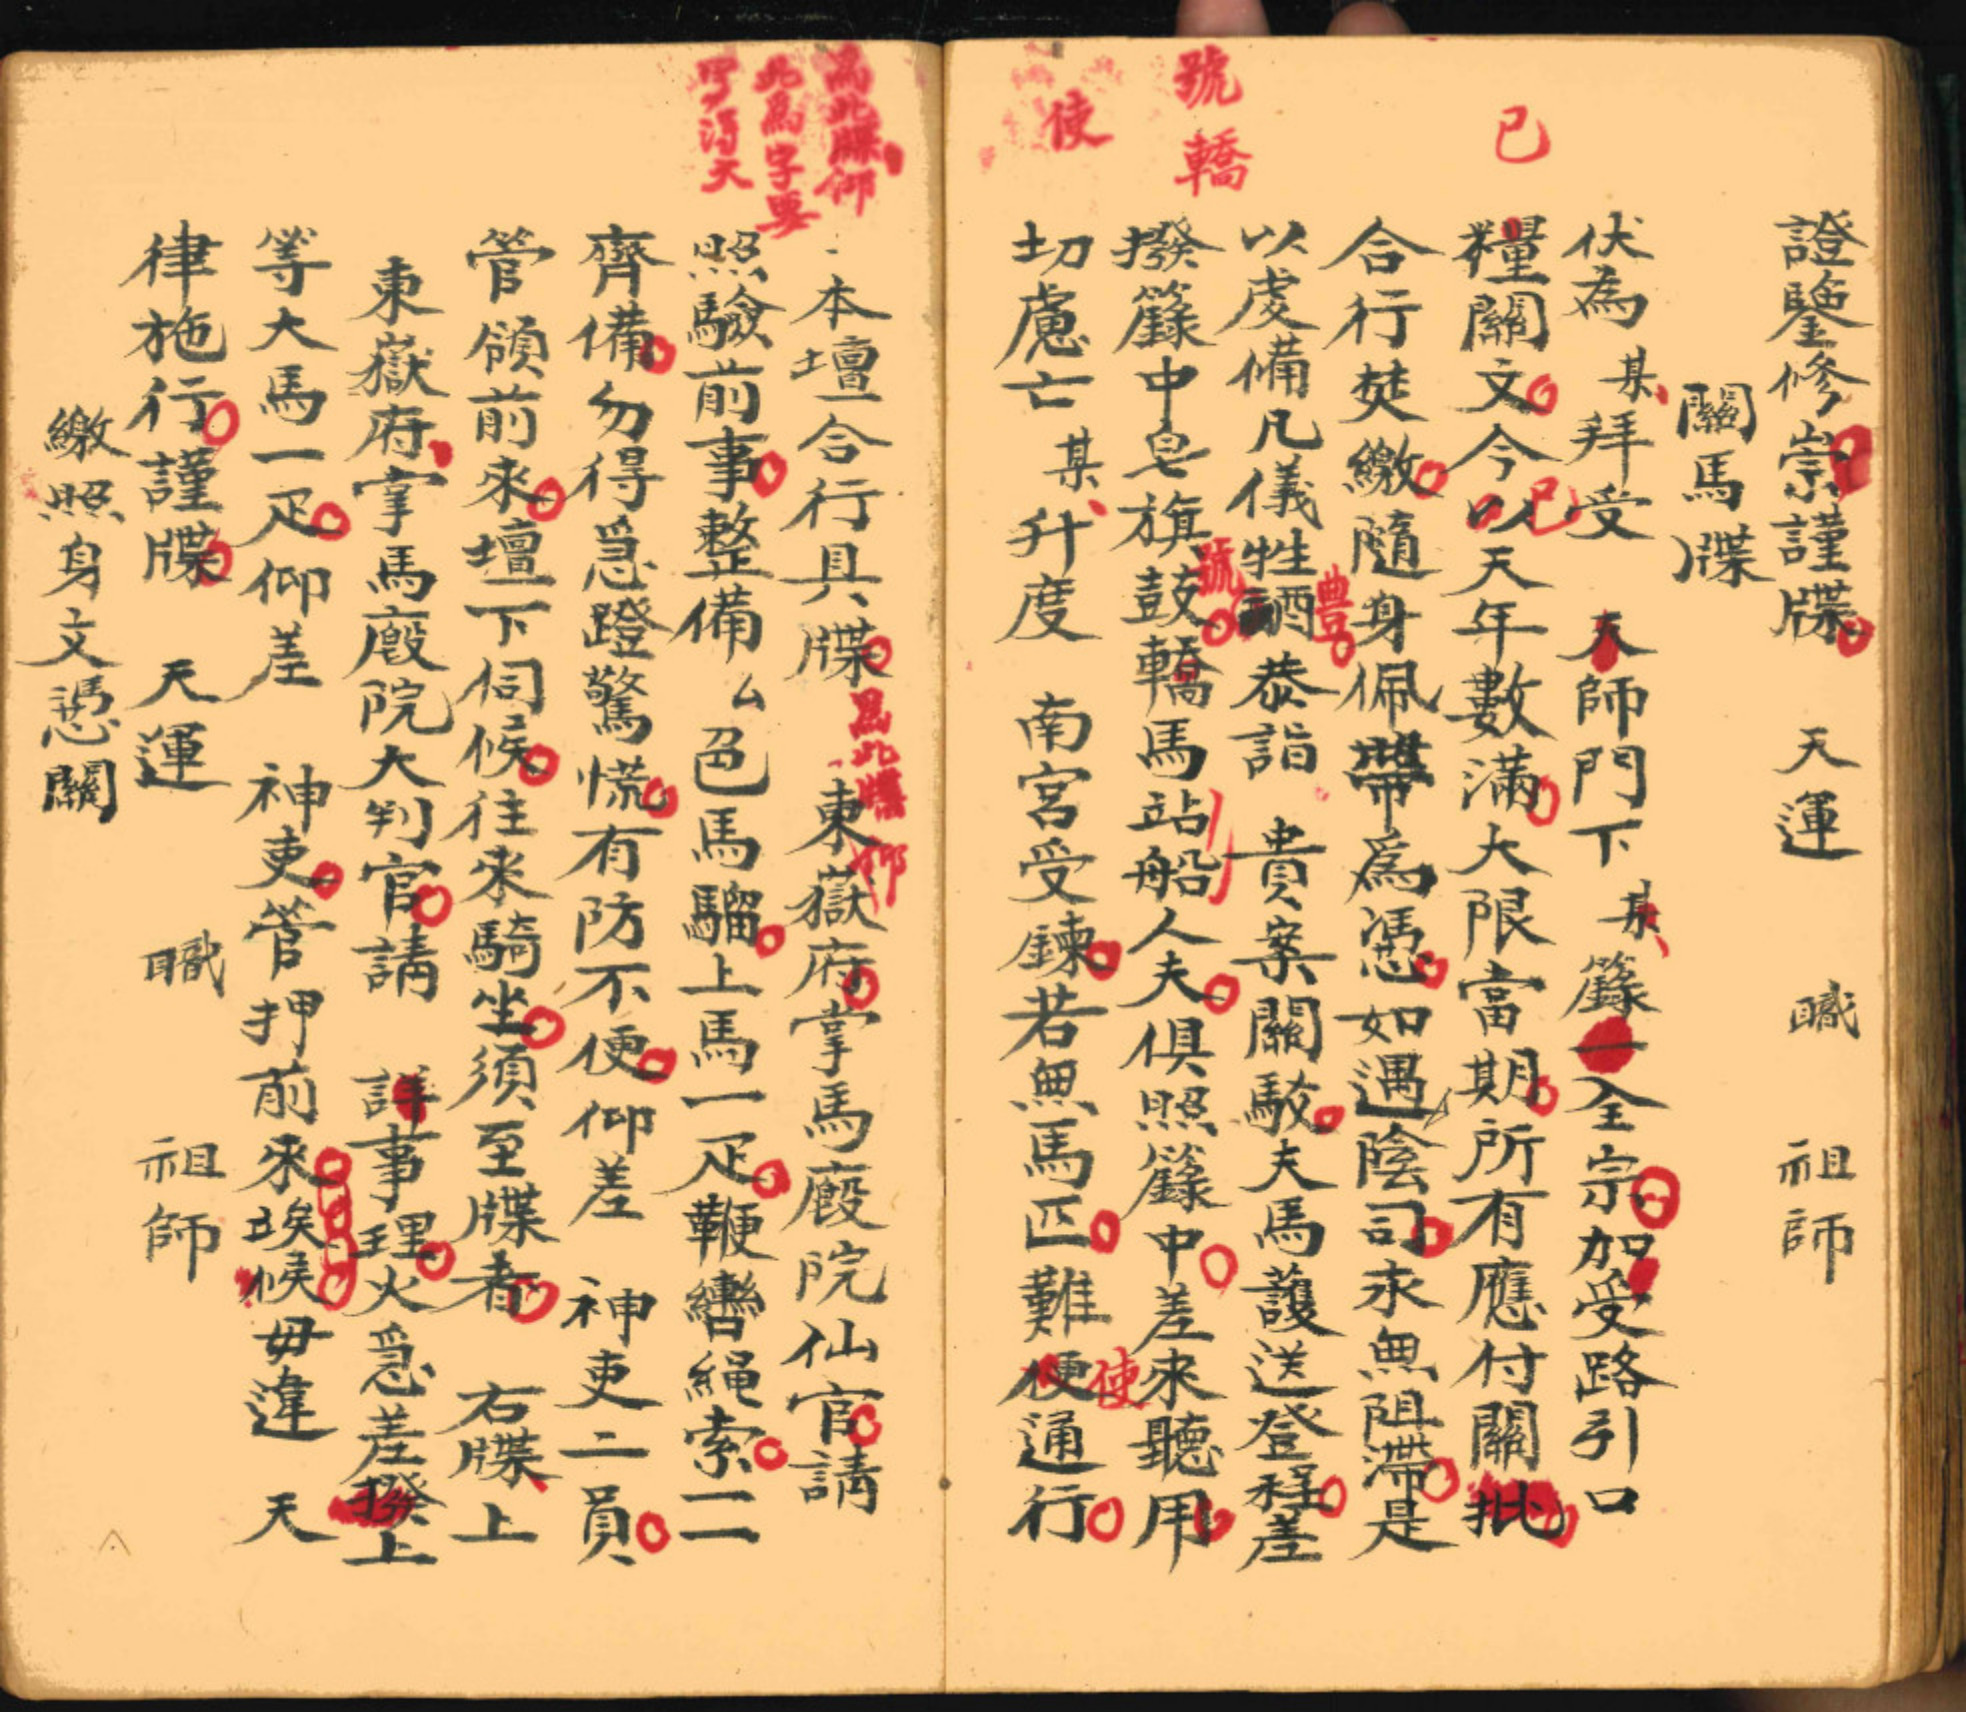 號轎
使
證鑒修崇謹牒 天運 職 祖師
關馬牒
伏為某拜受 天師門下某籙一全宗加受路引口
糧關文今以已天年數滿大限當期所有應付關批
合行焚繳隨身佩帶為憑如遇陰司永無阻滯是
以虔備凡儀牲酒豊恭詣 貴案關駮夫馬護送登程差
撥籙中皂旗鼓號轎馬站船人夫俱照籙中差來聽用
切慮亡某升度 南宮受鍊若無馬匹難便使通行
為此牒仰
此為字要
本壇合行具牒為此牒仰東嶽府掌馬廄院仙官請
照驗前事整備厶色馬騮上馬一疋鞭轡繩索一一
齊備勿得急蹬驚慌有防不便仰差 神吏二員
管領前來壇下伺候往來騎坐須至牒者 右牒上
東嶽府掌馬廄院大判官請 詳事理火急差撥上
等大馬一疋仰差 神吏管押前來埃候毋違 天
律施行謹牒 天運 職 祖師
繳照身文憑關